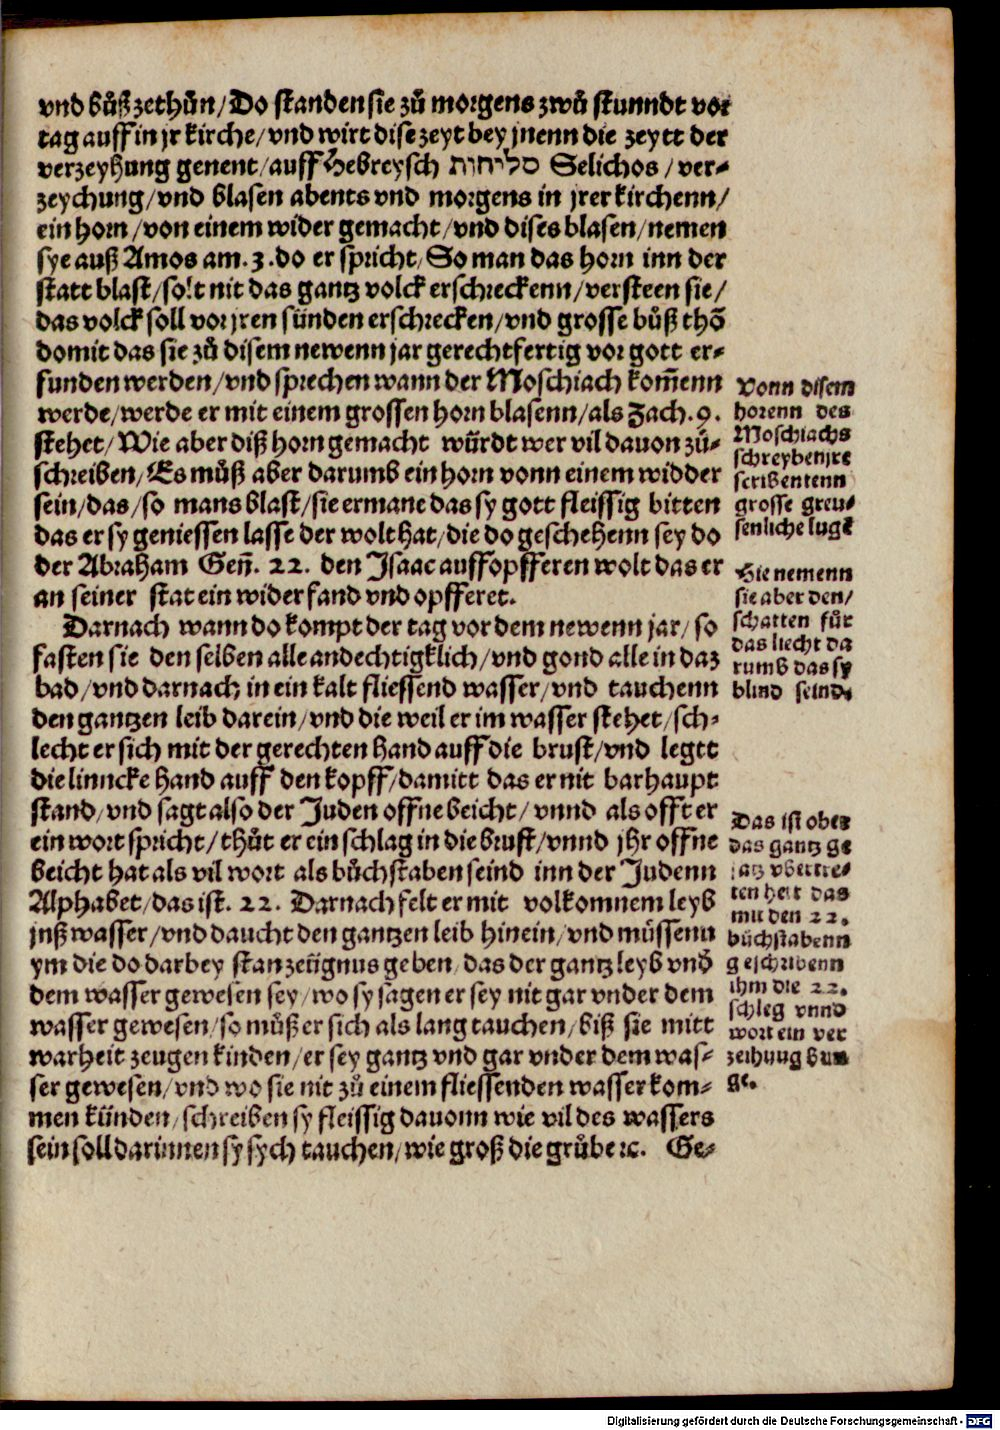 vnd bůß zethůn/ Do standen sie zů morgens zwů stunndt vor
tag auff in jr kirche/ vnd wirt dise zeyt bey jnenn die zeytt der
verzeyhung genent/ auff Hebreysch סליחות Selichos / ver-
zeychung/ vnd blasen abents vnd morgens in jrer kirchenn/
ein horn/ von einem wider gemacht/ vnd dises blasen/ nemen
sye auß Amos am. 3. do er spricht/ So man das horn inn der
statt blast/ solt nit das gantz volck erschreckenn/ versteen sie/
das volck soll vor jren sünden erschrecken/ vnd grosse bůß thō
domit das sie zů disem newenn jar gerechtfertig vor gott er-
funden werden/ vnd sprechen wann der Moschiach kom̄enn
werde/ werde er mit einem grossen horn blasenn/ als Zach. 9.
stehet/ Wie aber diß horn gemacht würdt wer vil dauon zů-
schreiben/ Es můß aber darumb ein horn vonn einem widder
sein/ das/ so mans blast/ sie ermane das sy gott fleissig bitten
das er sy geniessen lasse der wolthat/ die do geschehenn sey do
der Abraham Geñ. 22. den Isaac auffopfferen wolt das er
an seiner stat ein wider fand vnd opfferet.
Darnach wann do kompt der tag vor dem newenn jar/ so
fasten sie den selben alle andechtigklich/ vnd gond alle in daz
bad/ vnd darnach in ein kalt fliessend wasser/ vnd tauchenn
den gantzen leib darein/ vnd die weil er im wasser stehet/ sch-
lecht er sich mit der gerechten hand auff die brust/ vnd legtt
die linncke hand auff den kopff/ damitt das er nit barhaupt
stand/ vnd sagt also der Juden offne beicht/ vnnd als offt er
ein wort spricht/ thůt er ein schlag in die brust/ vnnd jhr offne
beicht hat als vil wort als bůchstaben seind inn der Judenn
Alphabet/ das ist. 22. Darnach felt er mit volkomnem leyb
jnß wasser/ vnd daucht den gantzen leib hinein/ vnd müssenn
ym die do darbey stan zeügnus geben/ das der gantz leyb vnd̄
dem wasser gewesen sey/ wo sy sagen er sey nit gar vnder dem
wasser gewesen/ so můß er sich als lang tauchen/ biß sie mitt
warheit zeugen kinden/ er sey gantz vnd gar vnder dem was-
ser gewesen/ vnd wo sie nit zů einem fliessenden wasser kom-
men künden/ schreiben sy fleissig dauonn wie vil des wassers
sein soll darinnen sy sych tauchen/ wie groß die grůb ꝛc. Ge-
Vonn disem
horenn des
Moschiachs
schreyben jre
scribentenn
grosse greu-
senliche lugē
Hie nemenn
sie aber den/
schatten für
das liecht da
rumb das sy
blind seind.
Das ist ober
das gantz ge
satz vbertre-
ten hat das
mit den 22.
bůchstabenn
geschribenn
ihm die 22.
schleg vnnd
wort ein ver
zeihung brin
ge.
Digitalisierung gefördert durch die Deutsche Forschungsgemeinschaft - DFG